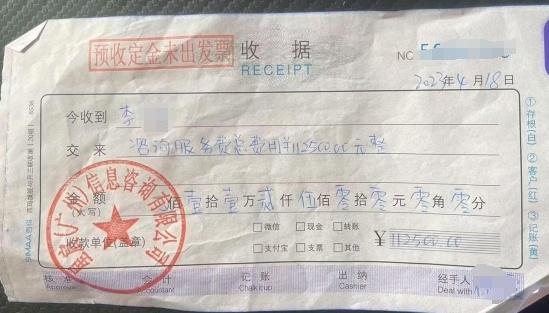 预收定金未出发票
收 据
RECEIPT
NC
2023年4月18日
今收到 李
交 来 咨询服务费总费用¥112500.00元整
金 额 佰壹拾壹万贰仟伍佰零拾零元零角零分
(大写)
收款单位(盖章)
微信 现金 转账
支付宝 支票 其他
¥112500.00
(广州)信息咨询有限公司
核准 会计 记账 出纳 经手人
Approval Accountant Chalk it up Cashier Deal with
①存根(白) ②客户(红) ③记账(黄)